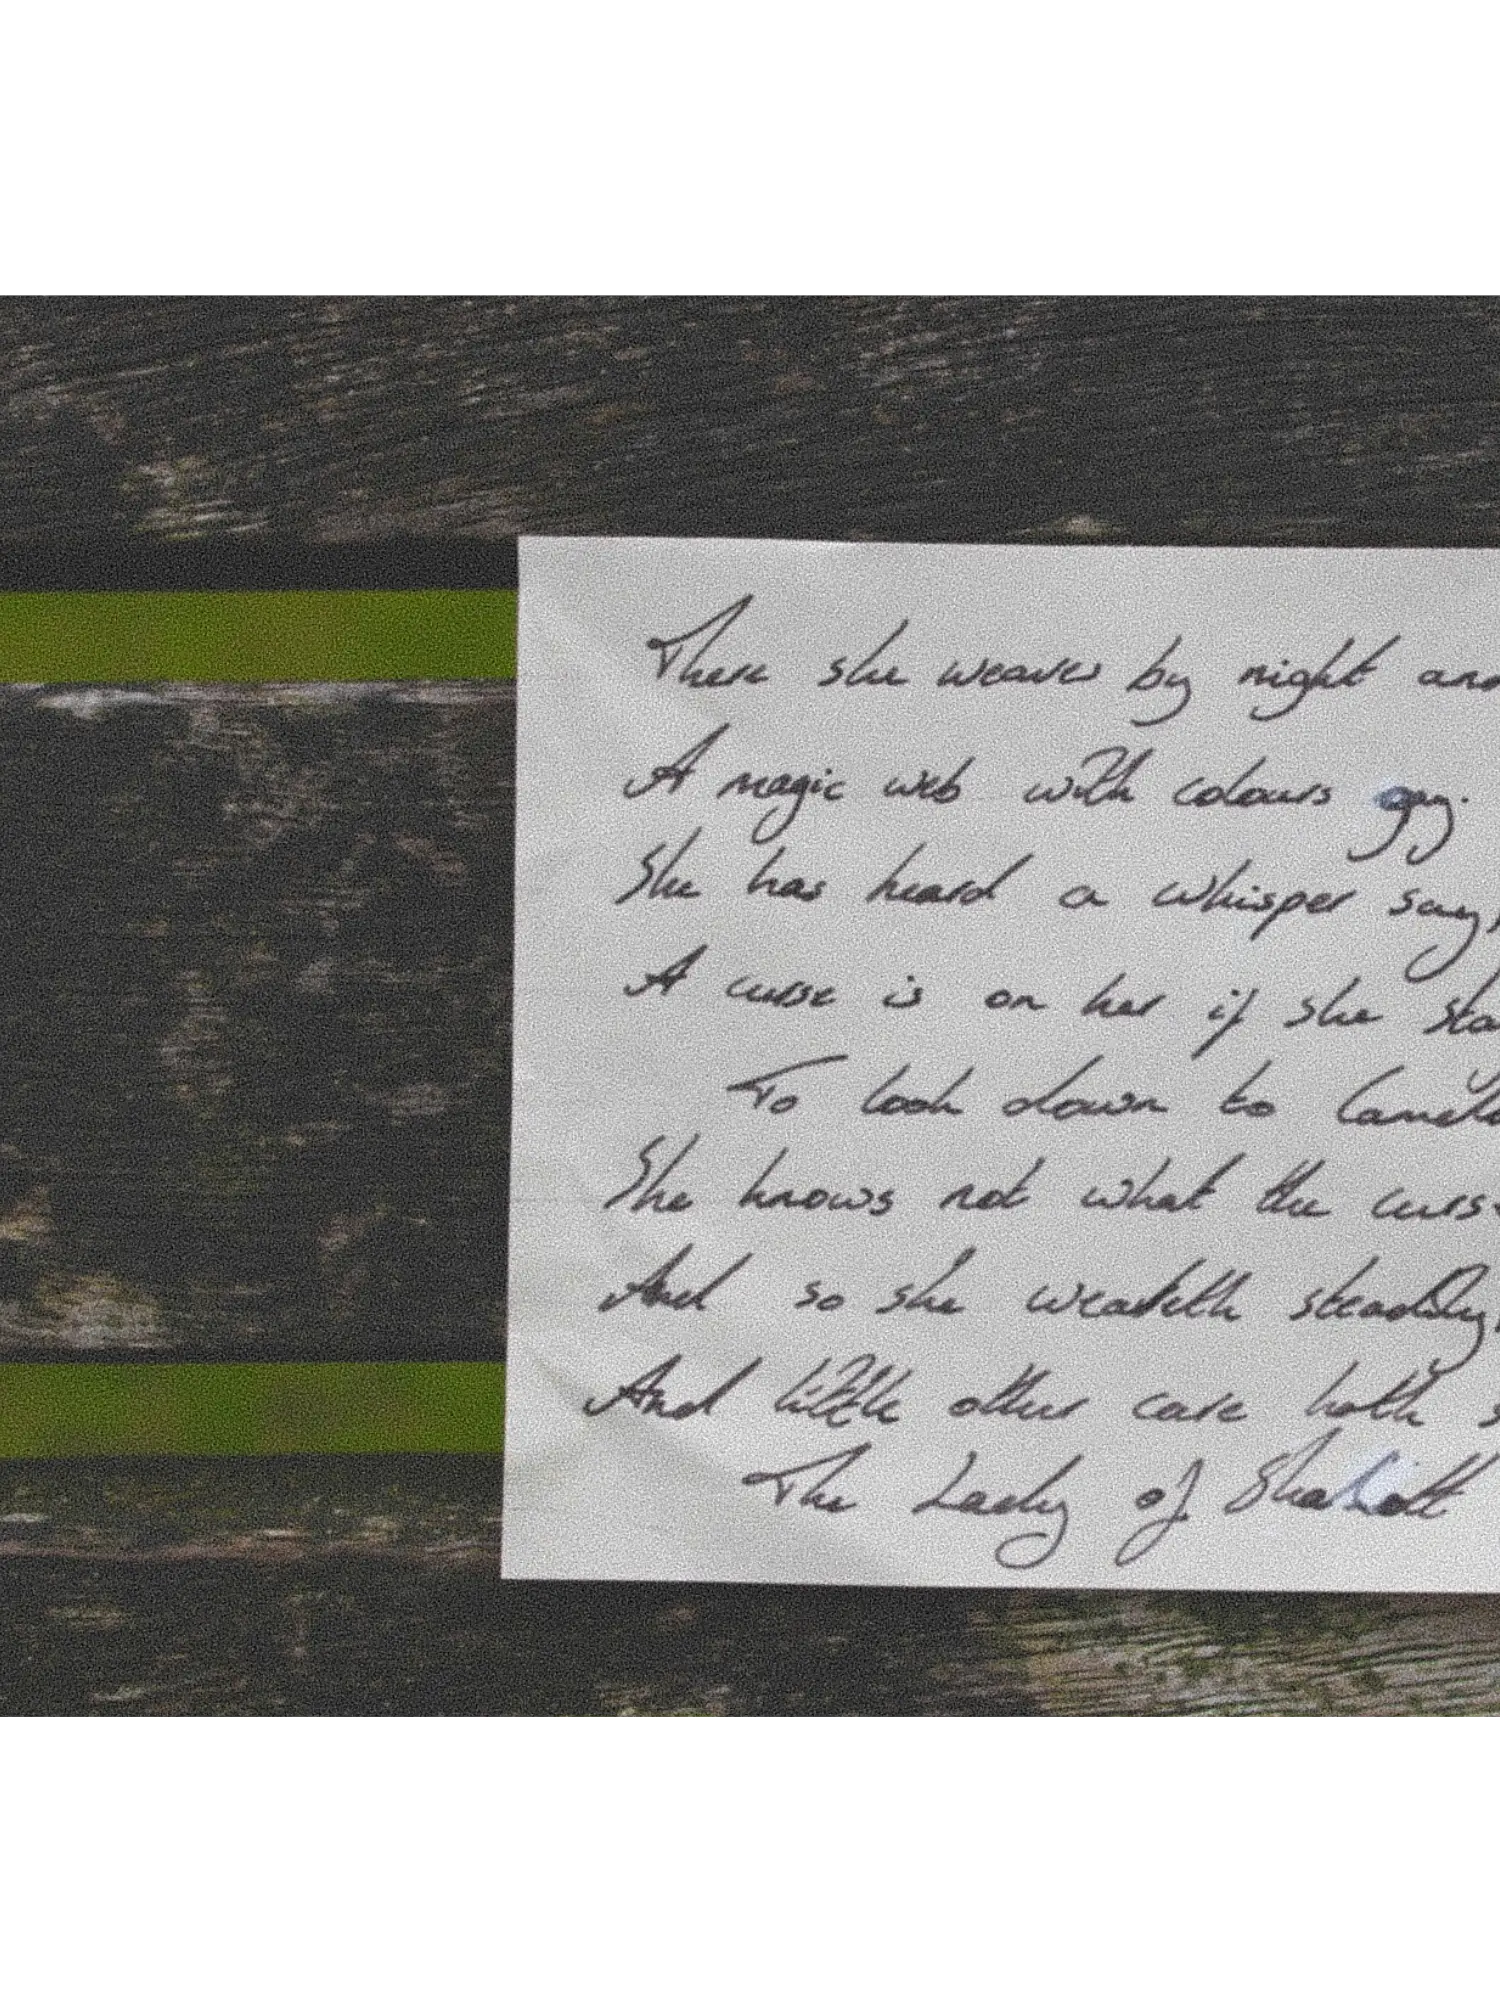 There she weaves by night and
A magic web with colours gay.
She has heard a whisper say,
A curse is on her if she
To look down to
She knows not what the
And so she weaveth steadily,
And little other care hath
The Lady of Shalott